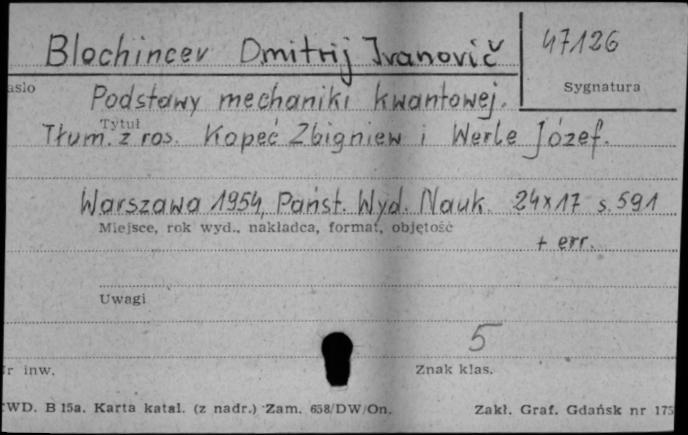 Blochincev Dmitrij Ivanovič
47126
Sygnatura
asło
Podstawy mechaniki kwantowej.
Tytuł
Tłum. z ros. Kopeć Zbigniew i Werle Józef.
Warszawa 1954, Państ. Wyd. Nauk. 24x17 s. 591
Miejsce, rok wyd., nakładca, format, objętość
+ err.
Uwagi
5
r inw.
Znak klas.
WD. B 15a. Karta katal. (z nadr.) Zam. 658/DW/On.
Zakł. Graf. Gdańsk nr 175